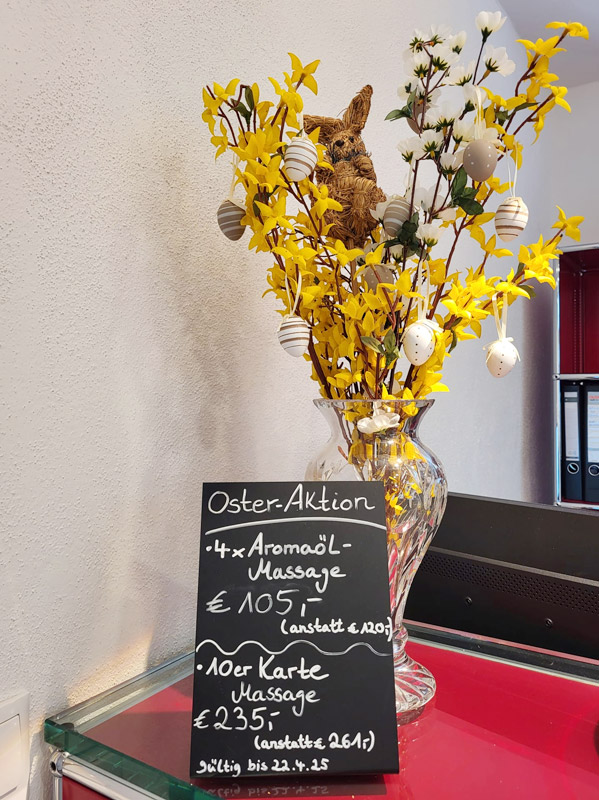 Oster-Aktion
• 4x Aromaöl-
Massage
€ 105,-
(anstatt € 120,-)
• 10er Karte
Massage
€ 235,-
(anstatt € 261,-)
gültig bis 22.4.25